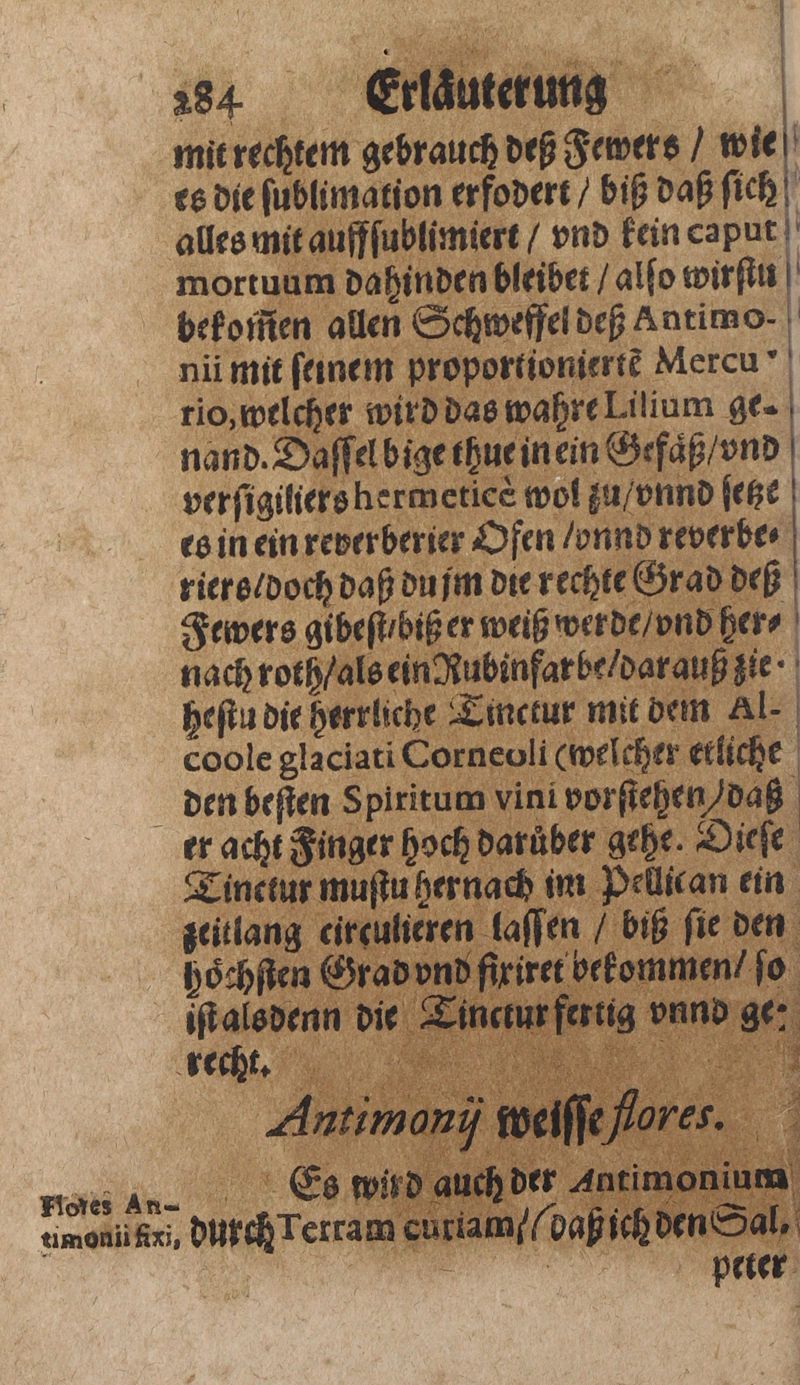 284 Erläuterung
mit rechtem gebrauch deß Fewers / wie
es die ſublimation erfodert / biß daß ſich
alles mit auffſublimiert / vnd kein caput
mortuum dahinden bleibet / alſo wirſtu
bekom̃en allen Schweffel deß Antimo-
nii mit ſeinem proportioniertẽ Mercu-
rio, welcher wird das wahre Lilium ge-
nand. Daſſelbige thue in ein Gefäß / vnd
verſigiliers hermeticè wol zu / vnnd ſetze
es in ein reverberier Ofen / vnnd reverbe-
riers / doch daß du jm die rechte Grad deß
Fewers gibeſt / biß er weiß werde / vnd her-
nach roth / als ein Rubinfarbe / darauß zie-
heſtu die herrliche Tinctur mit dem Al-
coole glaciati Corneoli (welcher etliche
den beſten Spiritum vini vorſtehen) daß
er acht Finger hoch darüber gehe. Dieſe
Tinctur muſtu hernach im Pellican ein
zeitlang circulieren laſſen / biß ſie den
höchſten Grad vnd fixiret bekommen / ſo
iſt alsdenn die Tinctur fertig vnnd ge-
recht.
Antimonij weiſſe flores.
Es wird auch der Antimonium
Flores An-
timonii fixi,
durch Terram curiam / (daß ich den Sal-
peter